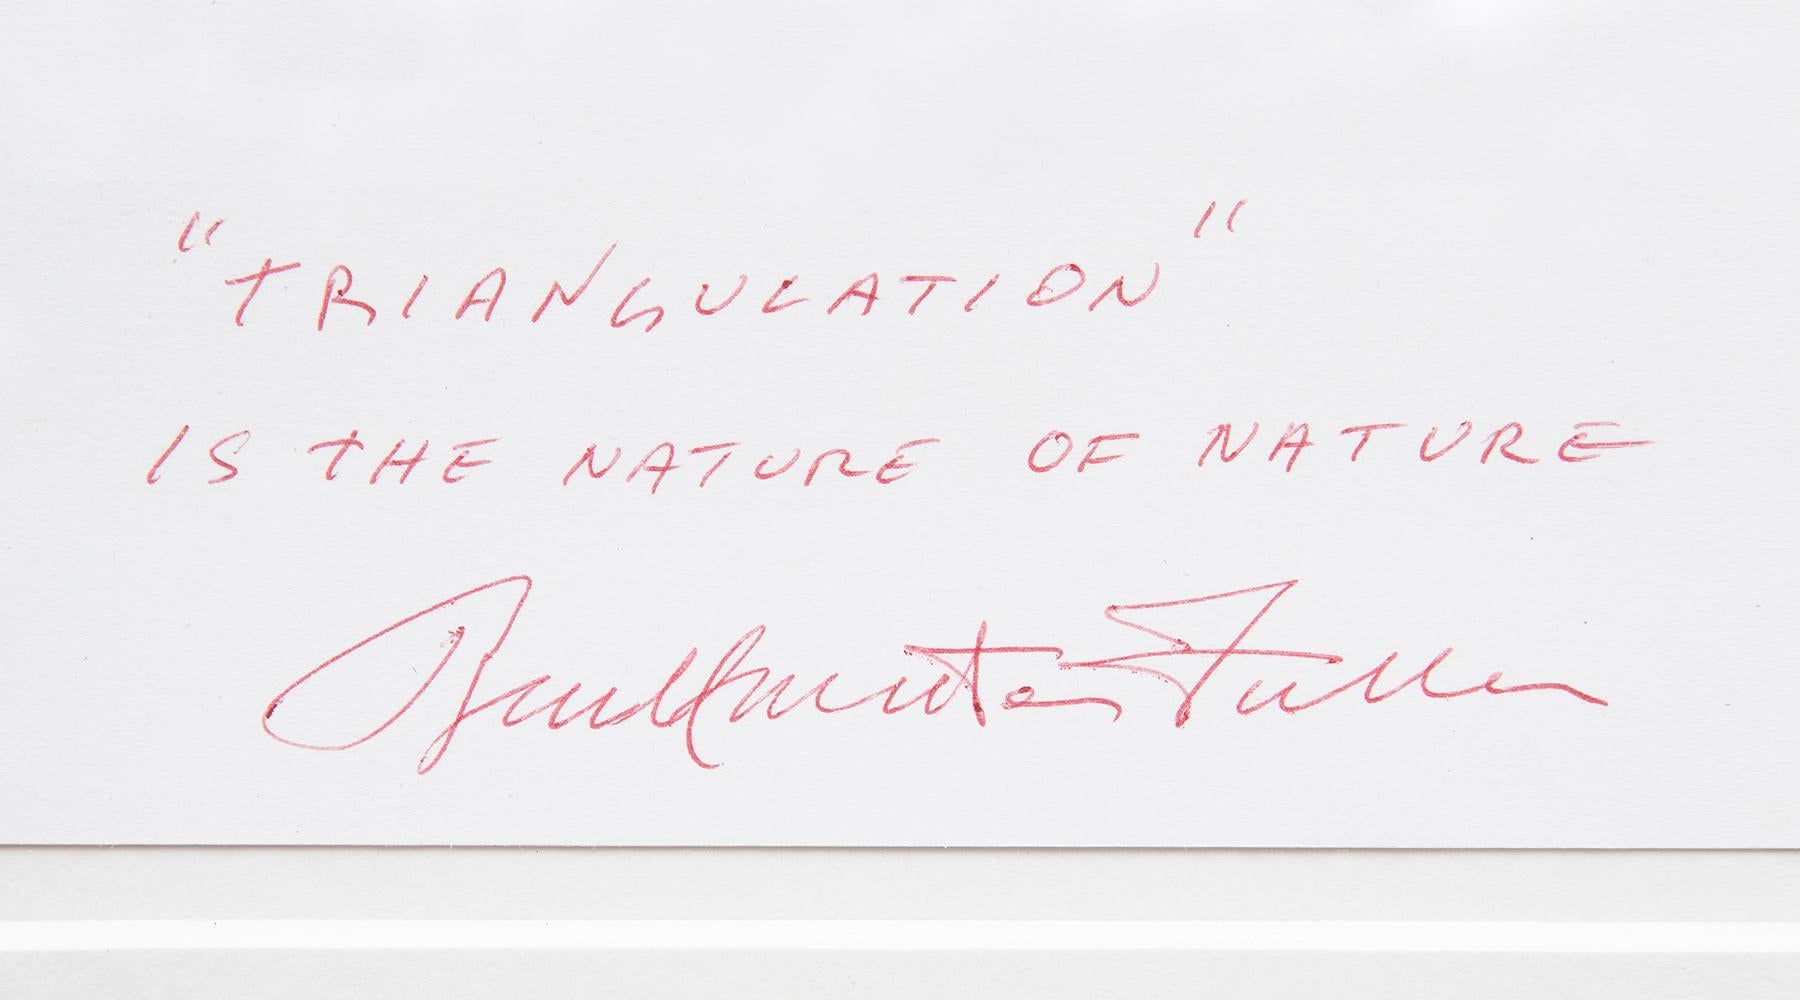 "TRIANGULATION"
IS THE NATURE OF NATURE
Buckminster Fuller